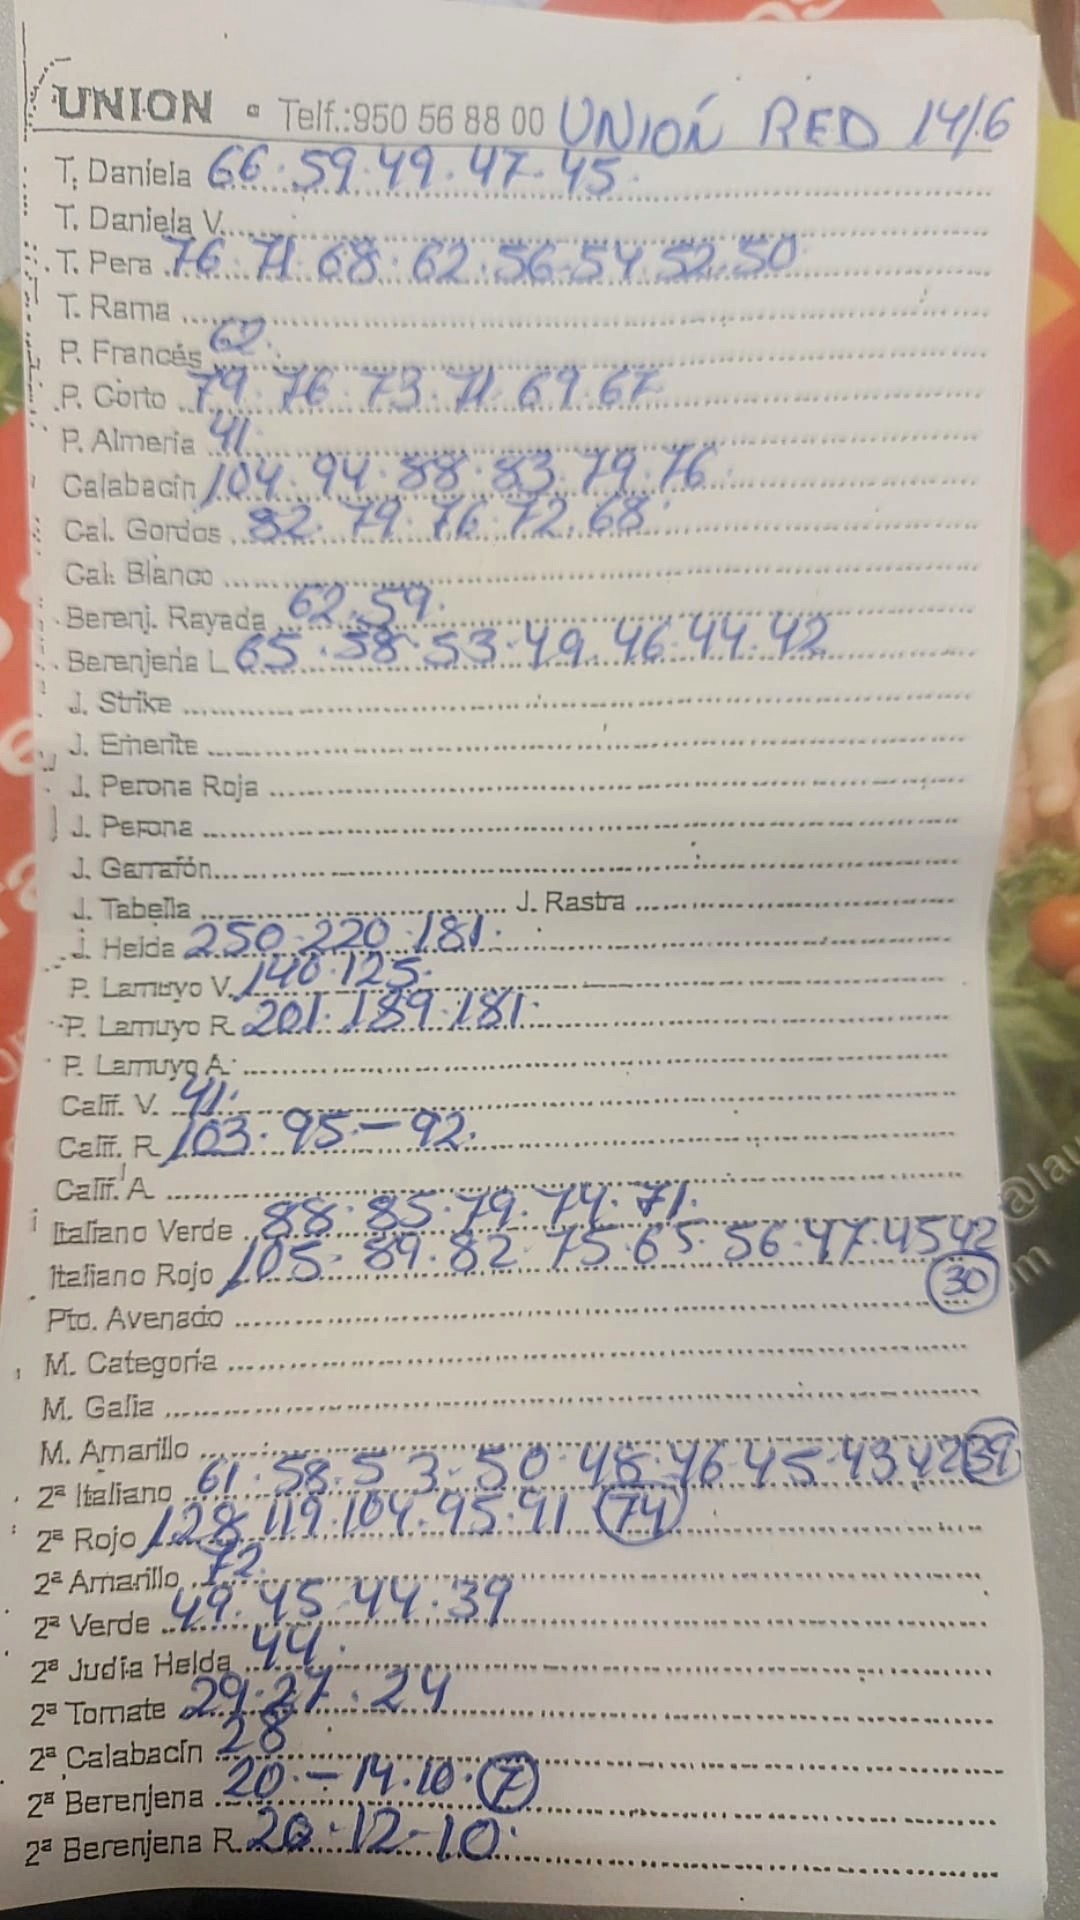 UNION Telf.:950 56 88 00 UNIÓN RED 14/6
T. Daniela 66.59.49.47.45.
T. Daniela V.
T. Pera 76.71.68.62.56.54.52.50
T. Rama
P. Francés 62.
P. Corto 79.76.73.71.69.67
P. Almería 41.
Calabacín 104.94.88.83.79.76.
Cal. Gordos 82.79.76.72.68.
Cal. Blanco
Berenj. Rayada 62.59.
Berenjena L 65.58.53.49.46.44.42
J. Strike
J. Emerite
J. Perona Roja
J. Perona
J. Garrafón
J. Tabella J. Rastra
J. Helda 250.220.181.
P. Lamuyo V. 140.125.
P. Lamuyo R. 201.189.181.
P. Lamuyo A.
Calif. V. 41.
Calif. R. 103.95.-92.
Calif. A.
Italiano Verde 88.85.79.74.71.
Italiano Rojo 105.89.82.75.65.56.47.45 42
30
Pto. Avenado
M. Categoría
M. Galia
M. Amarillo
2ª Italiano 61.58.53.50.48.46.45.43 42 39
2ª Rojo 128.119.104.95.91 74
2ª Amarillo 72.
2ª Verde 49.45.44.39
2ª Judía Helda 44.
2ª Tomate 29.27.24
2ª Calabacín 28
2ª Berenjena 20.-14.10.7
2ª Berenjena R. 20.12-10.